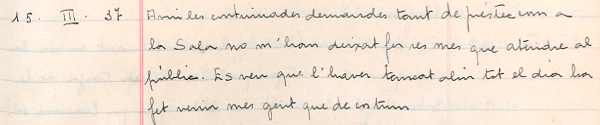 15. III. 37 Avui les continuades demandes tant de préstec com a
la Sala no m'han deixat fer res mes que atendre al
públic. Es veu que l'haver tancat ahir tot el dia ha
fet venir mes gent que de costum